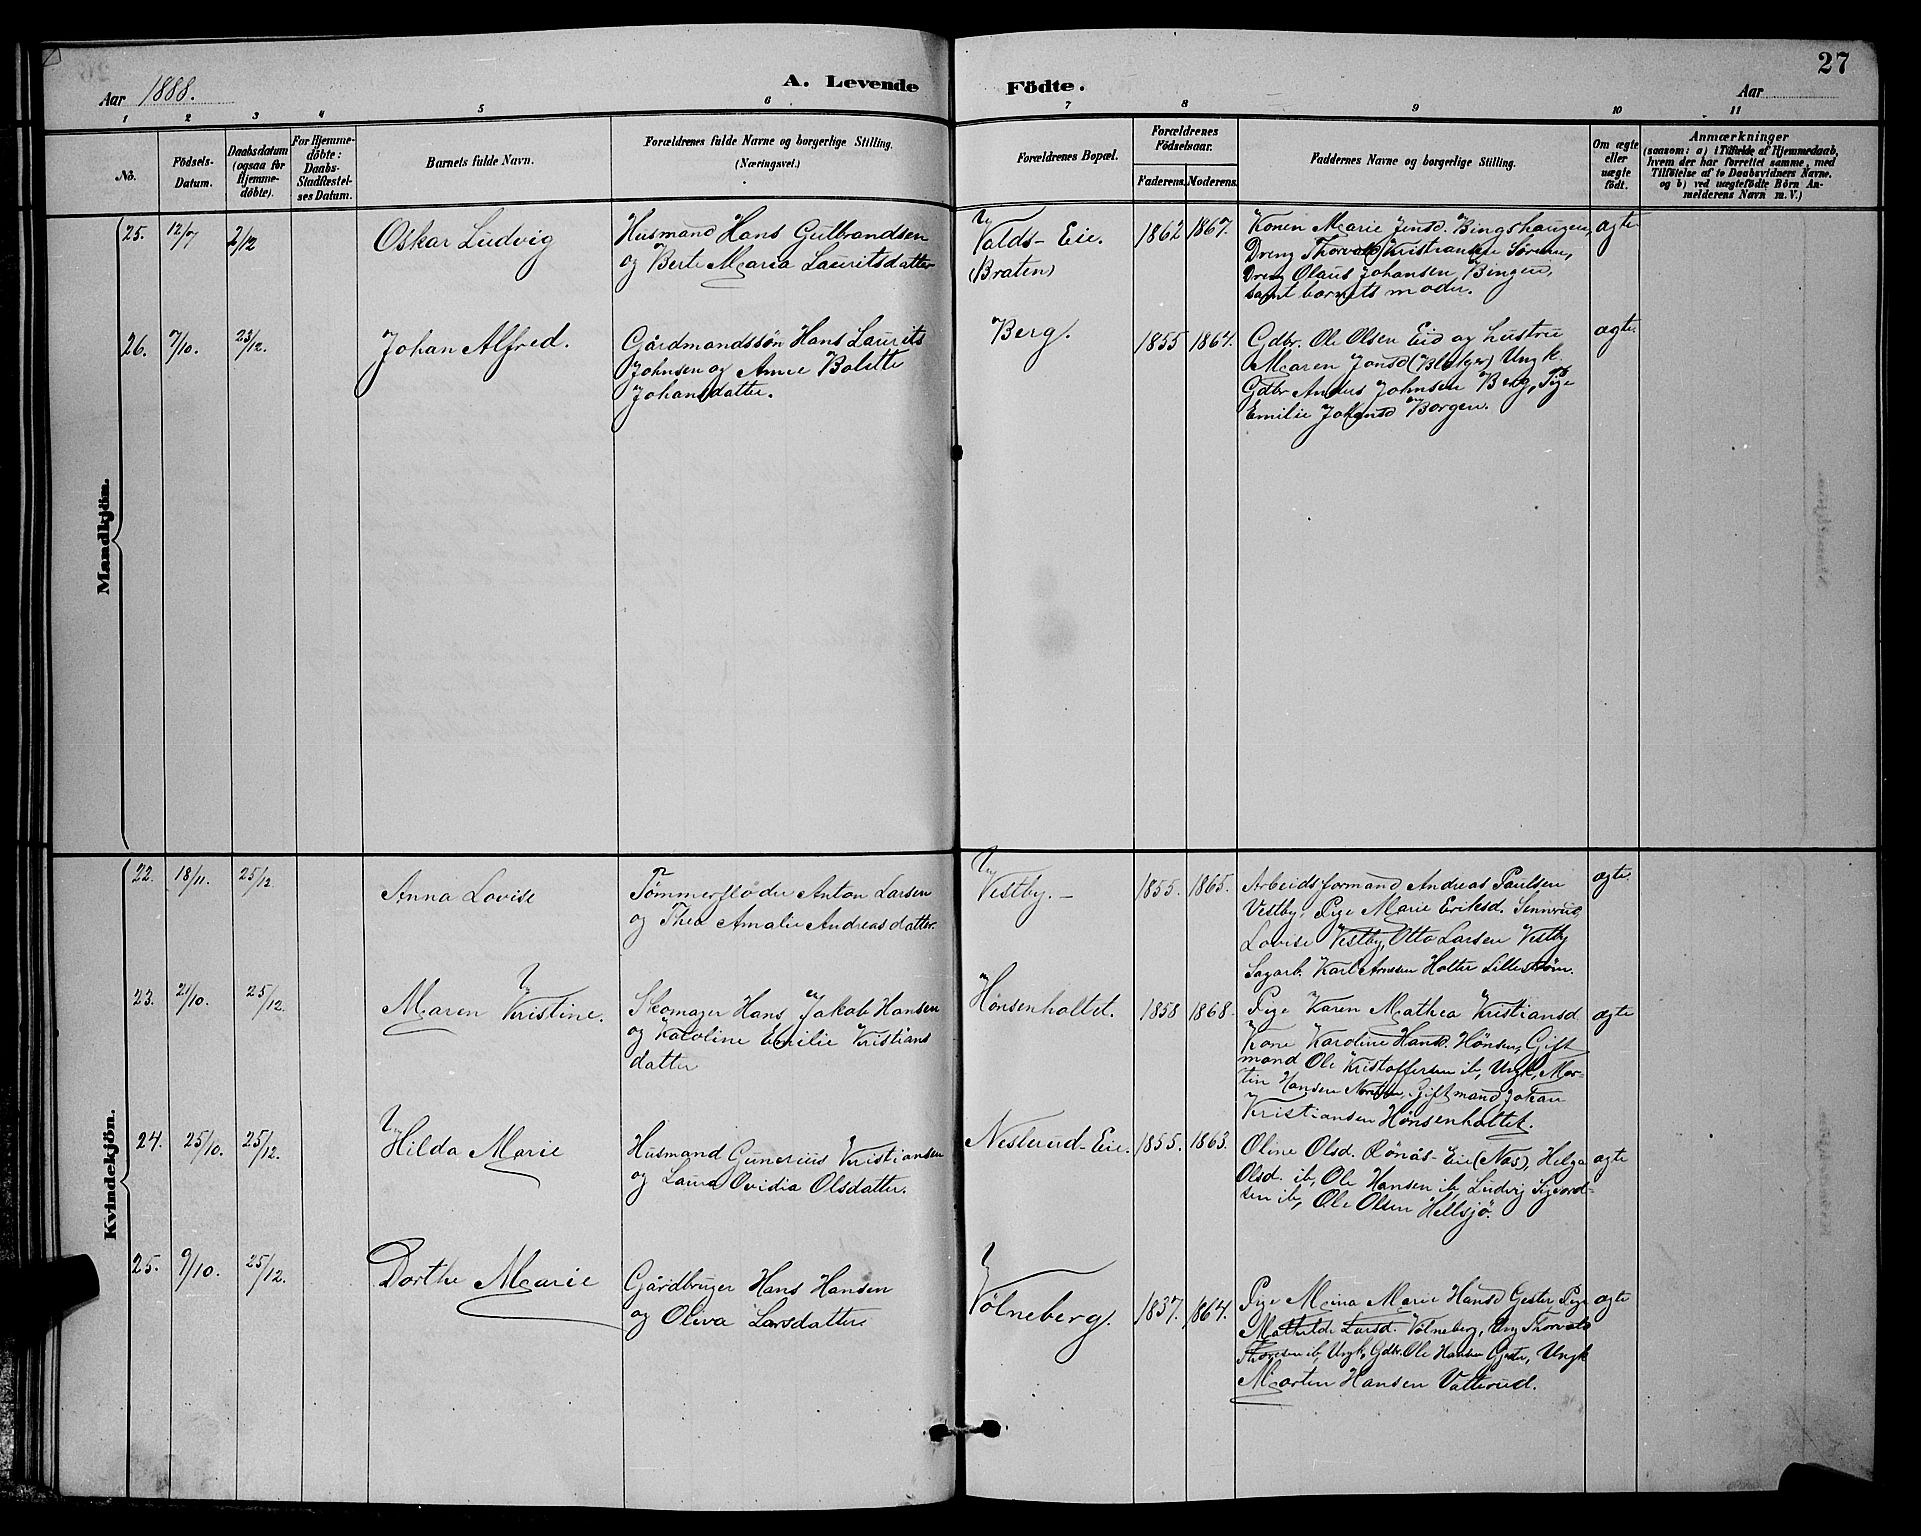 27
Aar 1888. A. Levende Födte. Aar
1 2 3 4 5 6 7 8 9 10 11
No.
Födsels-
Datum.
Daabsdatum
(ogsaa for
Hjemme-
döbte).
For Hjemme-
döbte:
Daabs-
Stadfæstel-
ses Datum.
Barnets fulde Navn.
Forældrenes fulde Navne og borgerlige Stilling.
(Næringsvei.)
Forældrenes Bopæl.
Forældrenes
Födselsaar.
Faderens. Moderens.
Faddernes Navne og borgerlige Stilling.
Om ægte
eller
uægte
födt.
Anmærkninger
(saasom: a) i Tilfælde af Hjemmedaab,
hvem der har forrettet samme, med
Tilföielse af to Daabsvidners Navne,
og b) ved uægtefödte Börn An-
melderens Navn m. V.)
Mandkjön.
25. 12/7 2/12
Oskar Ludvig
Husmand Hans Gulbrandsen
og Berte Maria Lauritsdatter
Valds-Eie.
(Braten)
1862 1867.
Konen Marie Jensd. Bingshaugen,
Dreng Thorvald Kristiansen Sørum,
Dreng Olaus Johansen Bingen,
samt barnets moder.
ægte
26. 7/10. 23/12.
Johan Alfred.
Gårdmandssön Hans Laurits
Johnsen og Anne Bolette
Johansdatter.
Berg.
1855 1864.
Gdbr. Ole Olsen Eid og hustru
Maren Jonsd Ungk.
Gdbr Anders Johnsen Berg, Pige
Emilie Johansd Borgen.
ægte.
Kvindekjön.
22. 18/11. 25/12.
Anna Lovise
Tömmerfløder Anton Larsen
og Thea Amalie Andreasdatter.
Vestby.-
1855. 1865.
Arbeidsformand Andreas Paulsen
Vestby, Pige Marie Eriksd. Sennerud,
Lovise Vestby, Otto Larsen Vestby
Sagarb. Karl Arnesen Holter Lillestrøm.
ægte.
23. 21/10. 25/12.
Maren Kristine.
Skomager Hans Jakob Hansen
og Karoline Emilie Kristians
datter
Hönsenhaltet.
1858 1868.
Pige Karen Mathea Kristiansd
Kone Karoline Hansd. Hönsen, Gift
mand Ole Kristoffersen ib, Ungk. Mar-
tin Hansen Giftmand Johan
Kristiansen Hönsenhaltet.
ægte
24. 25/10. 25/12.
Hilda Marie
Husmand Gunerius Kristiansen
og Laura Ovidia Olsdatter.
Neslund-Eie.
1855. 1863.
Oline Olsd. Rönås-Eie (Nos), Helga
Olsd. ib, Ole Hansen ib, Ludvig Sigvard-
sen ib, Ole Olsen Hellsjö.
ægte
25. 9/10. 25/12.
Dorthe Marie
Gårdbruger Hans Hansen
og Oliva Larsdatter
Vølneberg.
1837. 1864.
Pige Mina Marie Hansd Gester Pige
Mathilde Larsd. Volneberg, Ung Thorvald
Thoresen ib, Ungk. Gdbr. Ole Hansen Gjester, Ungk
Martin Hansen Vatterud.
ægte